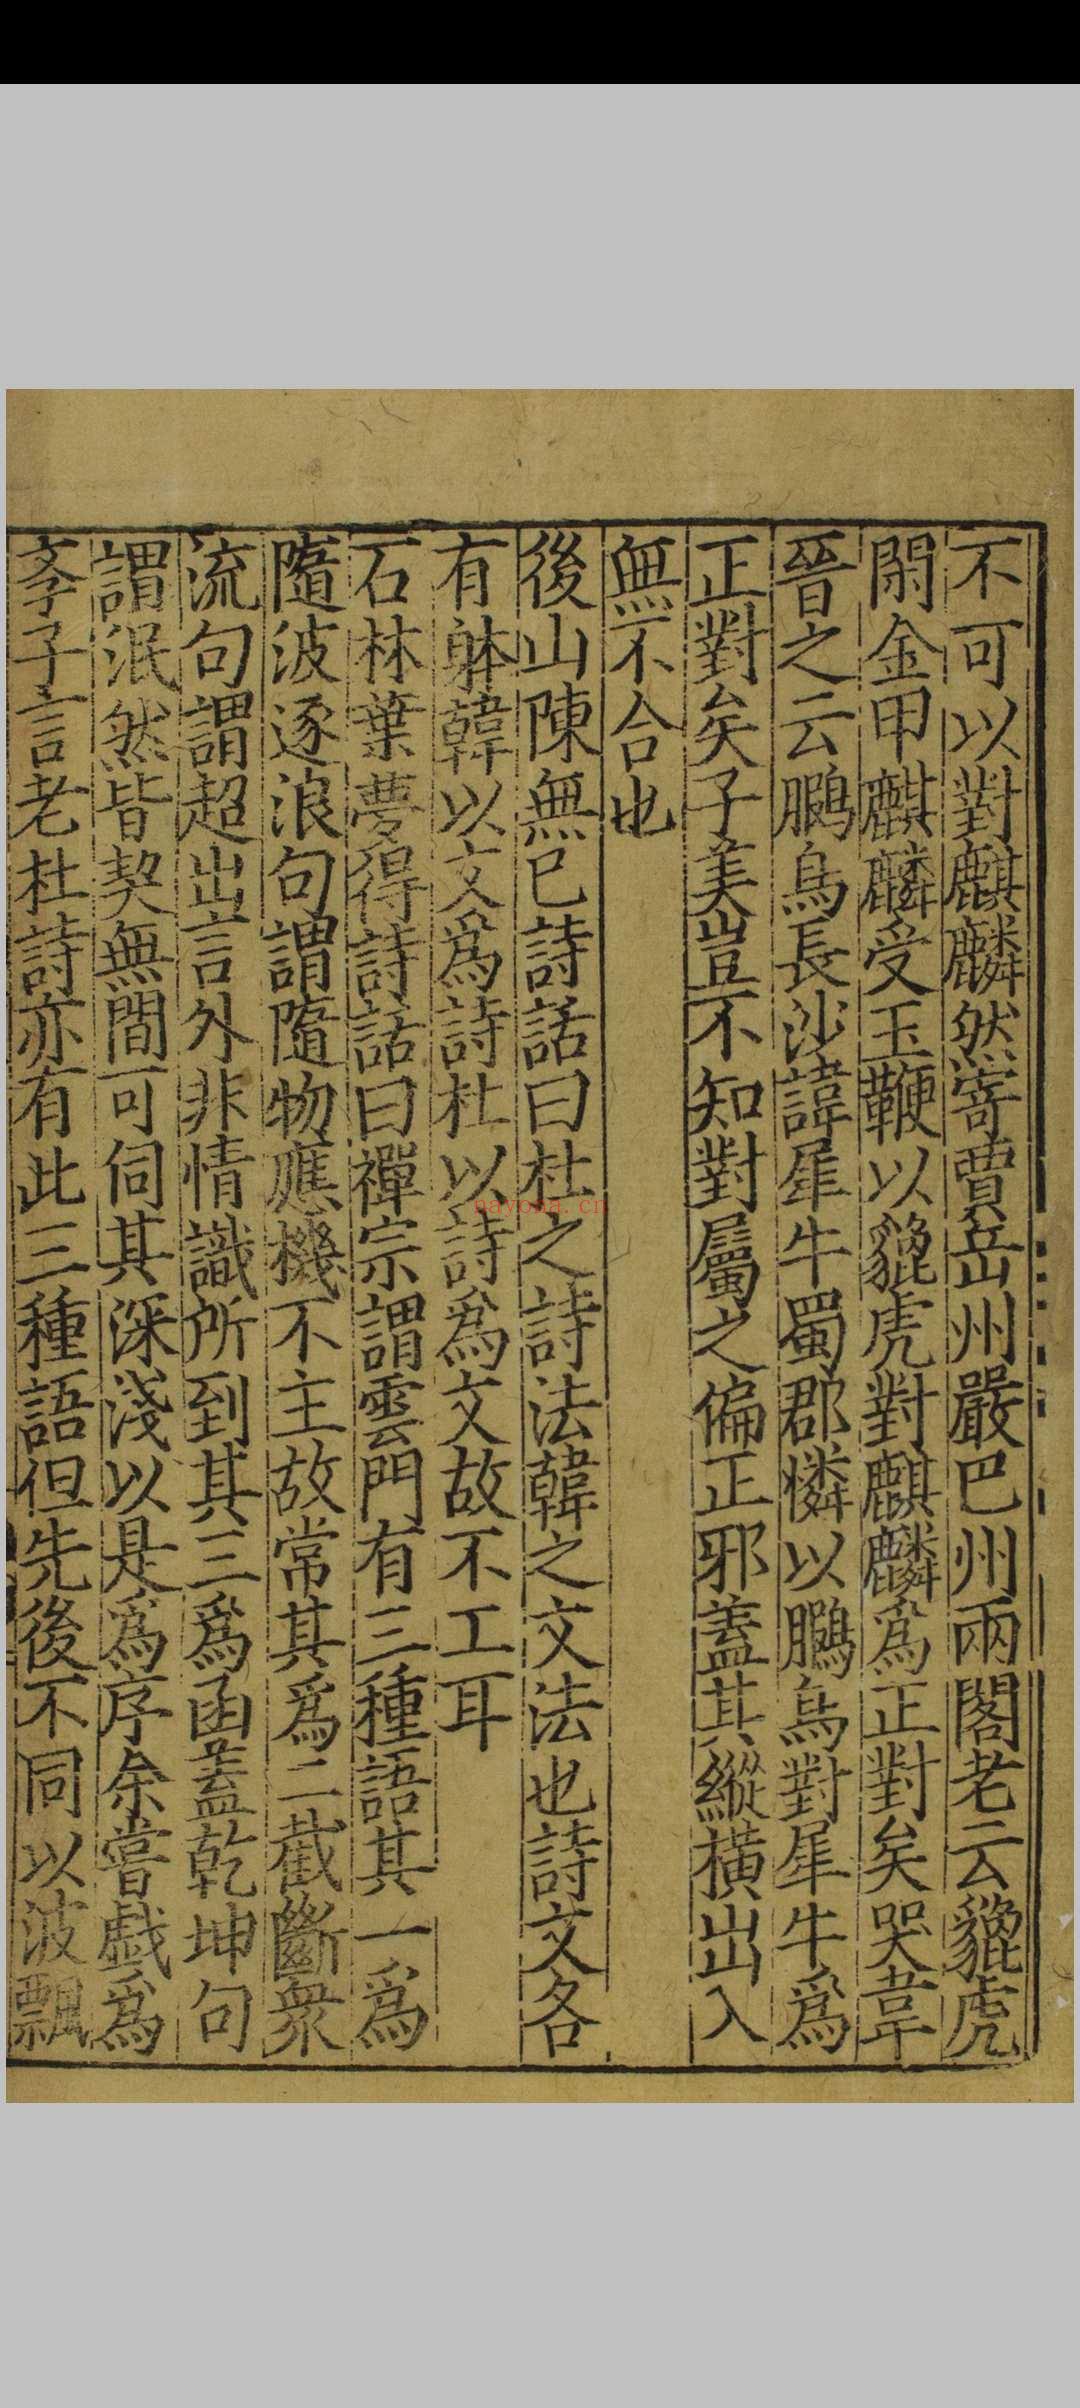 不可以對麒麟然寄賈岳州嚴巴州兩閣老云貔虎
閑金甲麒麟受玉鞭以貔虎對麒麟爲正對矣哭韋
晉之云鵩鳥長沙諱犀牛蜀郡憐以鵩鳥對犀牛爲
正對矣子美豈不知對屬之偏正邪蓋其縱橫出入
無不合也
後山陳無已詩話曰杜之詩法韓之文法也詩文各
有躰韓以文爲詩杜以詩爲文故不工耳
石林葉夢得詩話曰禪宗謂雲門有三種語其一爲
隨波逐浪句謂隨物應機不主故常其爲二截斷衆
流句謂超出言外非情識所到其三爲函蓋乾坤句
謂泯然皆契無間可伺其深淺以是爲序余嘗戲爲
斈子言老杜詩亦有此三種語但先後不同以波飄
nayona.cn